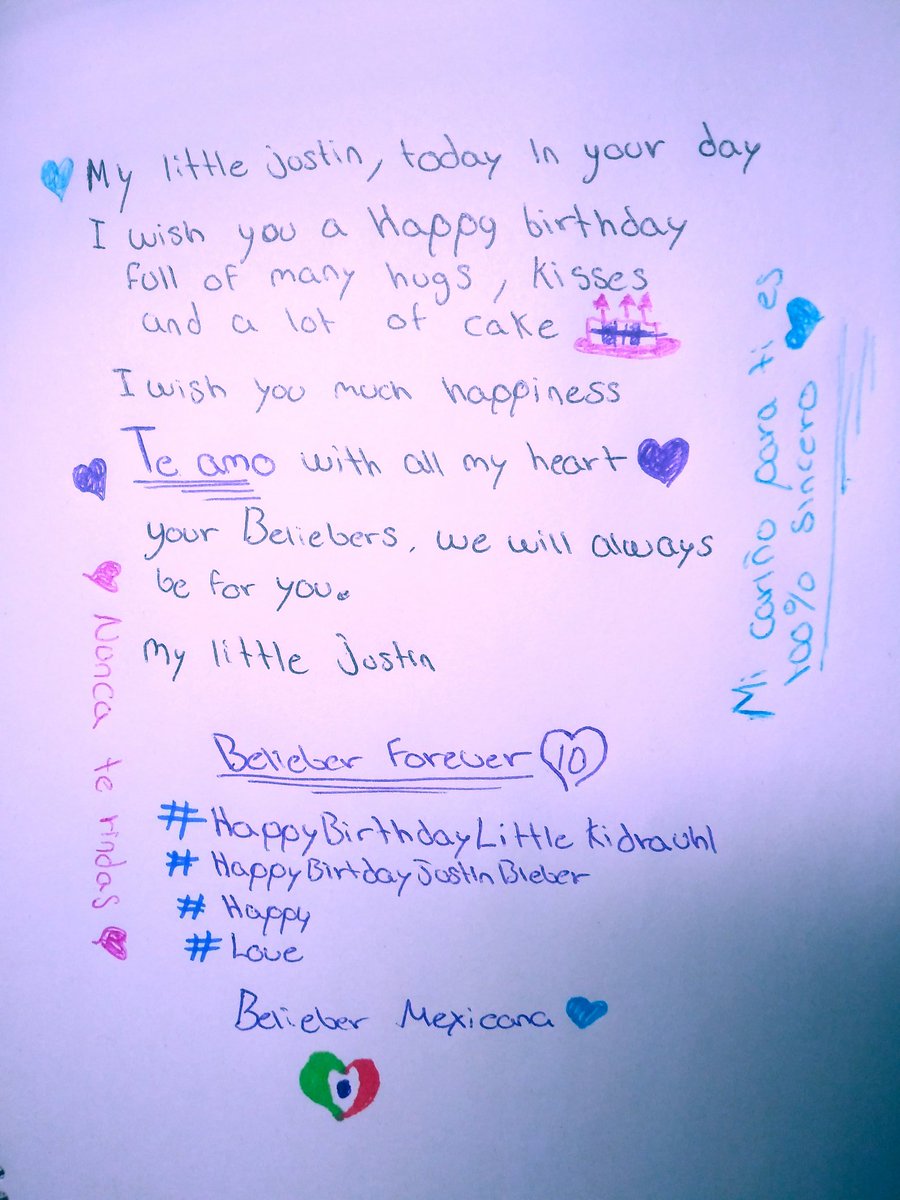 My little justin, today In your day
I wish you a Happy birthday
full of many hugs, kisses
and a lot of cake
I wish you much happiness
Te amo with all my heart
your Beliebers, we will always
be for you.
My little justin
Belieber Forever 10
#HappyBirthdayLittleKidrauhl
#HappyBirtdayJustinBieber
#Happy
#Love
Belieber Mexicana
Nunca te rindas
Mi cariño para ti es
100% sincero